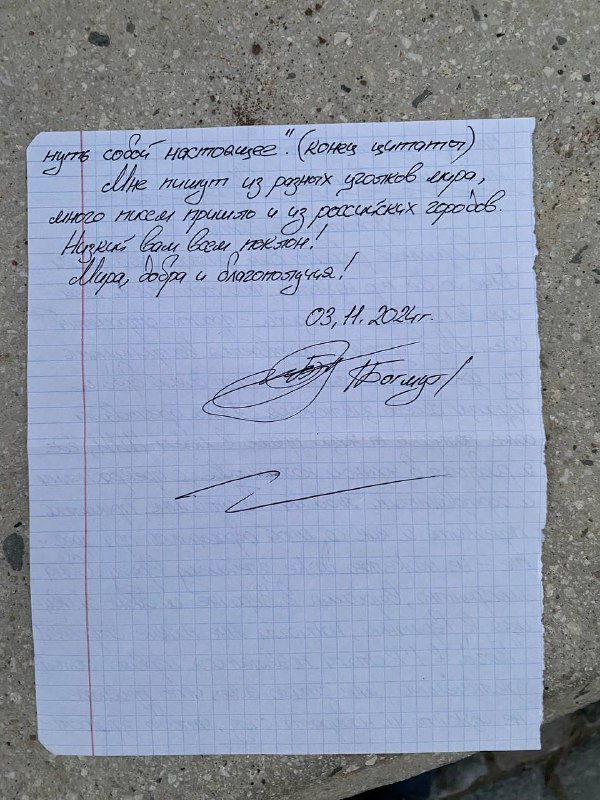 нуть собой настоящее". (конец цитаты)
Мне пишут из разных уголков мира,
много писем пришло и из российских городов.
Низкий вам всем поклон!
Мира, добра и благополучия!
03.11.2024г.